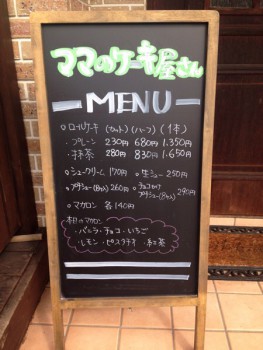 ママのケーキ屋さん
MENU
○ロールケーキ (カット) (ハーフ) (1本)
・プレーン 230円 680円 1,350円
・抹茶 280円 830円 1,650円
○シュークリーム 170円 ○生ショコ 250円
○プチシュー(8コ入) 260円 ○チョコプチシュー(8コ入) 290円
○マカロン 各140円
本日のマカロン
・バニラ・チョコ・いちご
・レモン・ピスタチオ・紅茶